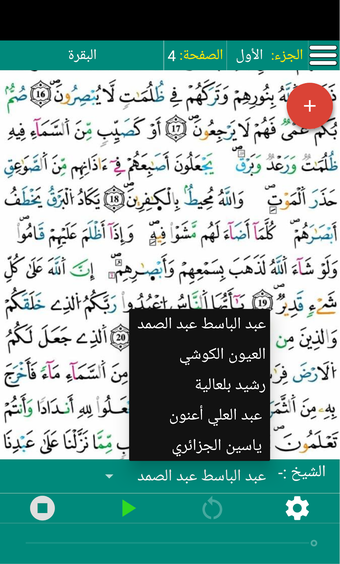 الجزء: الأول الصفحة: 4 البقرة
اُ۬للَّهُ بِنُورِهِمْ وَتَرَكَهُمْ فِي ظُلُمَٰتٖ لَّا يُبْصِرُونَۖ 16 صُمُّۢ
بُكْمٌ عُمْيٞ فَهُمْ لَا يَرْجِعُونَۖ 17 أَوْ كَصَيِّبٖ مِّنَ اَ۬لسَّمَآءِ فِيهِ
ظُلُمَٰتٞ وَرَعْدٞ وَبَرْقٞۖ يَجْعَلُونَ أَصَٰبِعَهُمْ فِےٓ ءَاذَانِهِم مِّنَ اَ۬لصَّوَٰعِقِ
حَذَرَ اَ۬لْمَوْتِۖ وَاللَّهُ مُحِيطُۢ بِالْكٰ۪فِرِينَۖ 18 يَكَادُ اُ۬لْبَرْقُ يَخْطَفُ
أَبْصَٰرَهُمْۖ كُلَّمَآ أَضَآءَ لَهُم مَّشَوْاْ فِيهِۖ وَإِذَآ أَظْلَمَ عَلَيْهِمْ قَامُواْۖ
وَلَوْ شَآءَ اَ۬للَّهُ لَذَهَبَ بِسَمْعِهِمْ وَأَبْصٰ۪رِهِمْۖ إِنَّ اَ۬للَّهَ عَلَىٰ كُلِّ
شَےْءٖ قَدِيرٞۖ 19 يَٰٓأَيُّهَا اَ۬لنَّاسُ اُ۟عْبُدُواْ رَبَّكُمُ اُ۬لذِے خَلَقَكُمْ
وَالذِينَ مِن 20 اَ۬لذِے جَعَلَ لَكُمُ
اُ۬لَارْضَ مِنَ اَ۬لسَّمَآءِ مَآءٗ فَأَخْرَجَ
بِهِۦ مِنَ لِلهِ أَندَاداٗ وَأَنتُمْ
تَعْلَمُونَۖ مِّمَّا نَزَّلْنَا عَلَىٰ عَبْدِنَا
عبد الباسط عبد الصمد
العيون الكوشي
رشيد بلعالية
عبد العلي أعنون
ياسين الجزائري
الشيخ :- عبد الباسط عبد الصمد